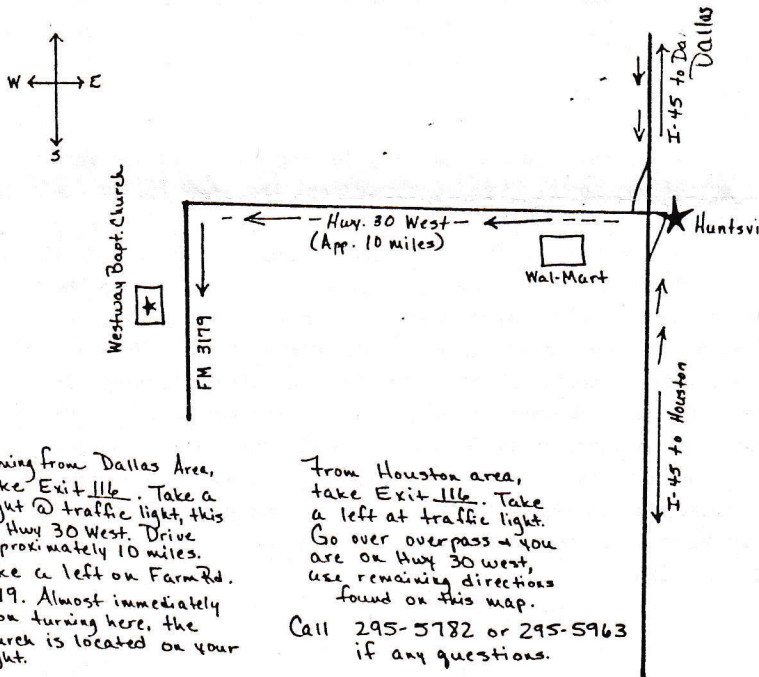 Dallas
I-45 to Da.
W E
S
Westway Bapt. Church
Hwy. 30 West
(App. 10 miles)
Wal-Mart
Huntsvi
FM 3179
I-45 to Houston
ming from Dallas Area,
ke Exit 116. Take a
ght @ traffic light, this
Hwy 30 West. Drive
proximately 10 miles.
ke a left on Farm Rd.
19. Almost immediately
on turning here, the
urch is located on your
ght.
From Houston area,
take Exit 116. Take
a left at traffic light.
Go over overpass & you
are on Hwy 30 west,
use remaining directions
found on this map.
Call 295-5782 or 295-5963
if any questions.